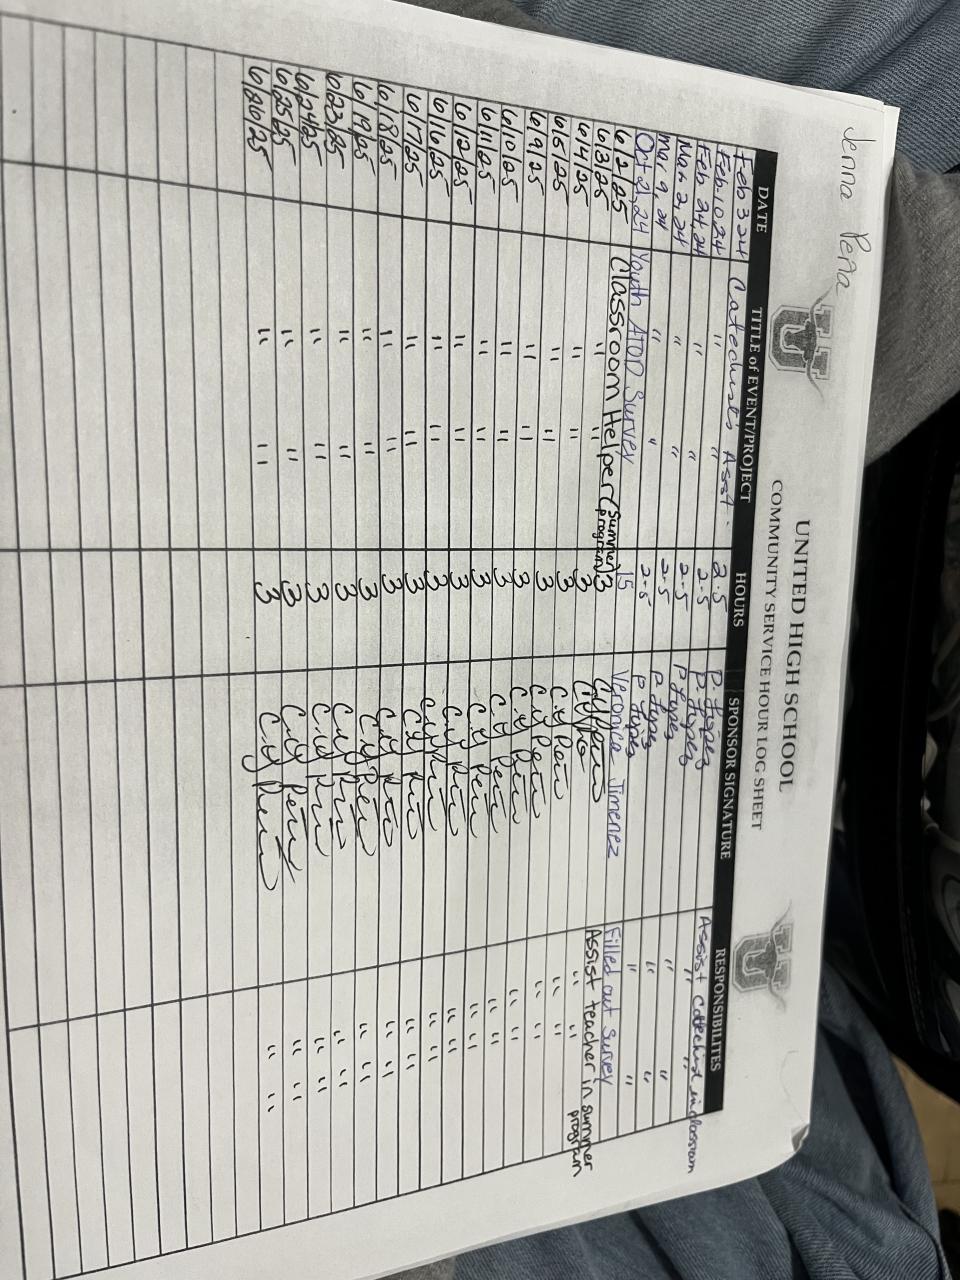 Jenna Peña
UNITED HIGH SCHOOL
COMMUNITY SERVICE HOUR LOG SHEET
DATE TITLE of EVENT/PROJECT HOURS SPONSOR SIGNATURE RESPONSIBILITES
Feb 3 24 Catechist's Asst. 2.5 P. Assist Catechist in classroom
Feb. 10, 24 " " 2.5 P. " "
Feb. 24, 24 " " 2.5 P " "
Mar 2, 24 " " 2.5 P. " "
Mar 9, 24 " " 2.5 P " "
Oct 21, 24 Youth ATOD Survey 15 Veronica Jimenez Filled out Survey
6/2/25 Classroom Helper (Summer program) 3 Assist teacher in summer program
6/3/25 " " 3 " "
6/4/25 " " 3 " "
6/5/25 " " 3 " "
6/9/25 " " 3 " "
6/10/25 " " 3 " "
6/11/25 " " 3 " "
6/12/25 " " 3 " "
6/16/25 " " 3 " "
6/17/25 " " 3 " "
6/18/25 " " 3 " "
6/19/25 " " 3 " "
6/23/25 " " 3 " "
6/24/25 " " 3 " "
6/25/25 " " 3 " "
6/26/25 " " 3 " "